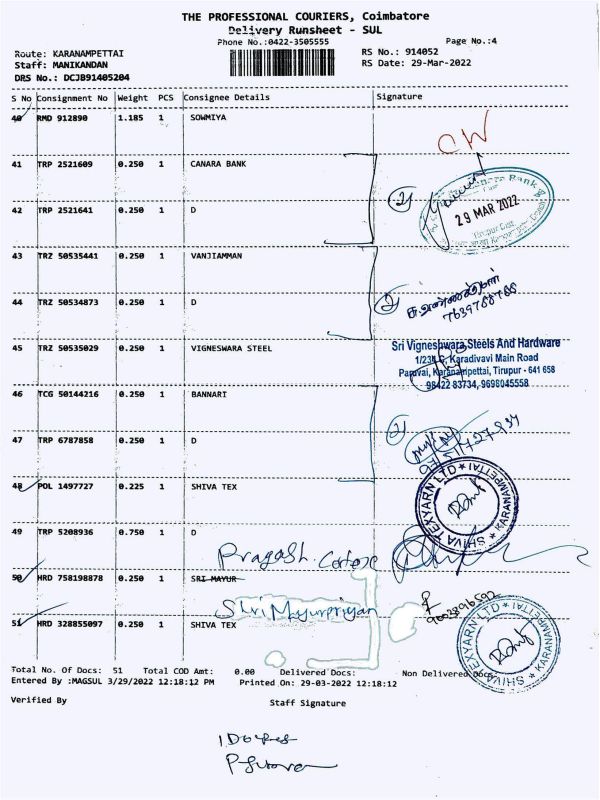 THE PROFESSIONAL COURIERS, Coimbatore
Delivery Runsheet - SUL
Phone No.:0422-3505555
Page No.:4
Route: KARANAMPETTAI
RS No.: 914052
Staff: MANIKANDAN
RS Date: 29-Mar-2022
DRS No.: DCJB91405204
S No Consignment No Weight PCS Consignee Details Signature
40 RMD 912890 1.185 1 SOWMIYA
CW
41 TRP 2521609 0.250 1 CANARA BANK
29 MAR 2022
Tirupur Dist.
42 TRP 2521641 0.250 1 D
43 TRZ 50535441 0.250 1 VANJIAMMAN
44 TRZ 50534873 0.250 1 D
7639788788
45 TRZ 50535029 0.250 1 VIGNESWARA STEEL
Sri Vigneshwara Steels And Hardware
Karadivavi Main Road
Paruvai, Karanampettai, Tirupur - 641 658
98422 83734, 9698045558
46 TCG 50144216 0.250 1 BANNARI
47 TRP 6787858 0.250 1 D
48 POL 1497727 0.225 1 SHIVA TEX
SHIVA TEXYARN LTD KARANAMPETTAI
49 TRP 5208936 0.750 1 D
Pragash.
50 HRD 758198878 0.250 1 SRI MAYUR
Shri Mayurpriyan
51 HRD 328855097 0.250 1 SHIVA TEX
SHIVA TEXYARN LTD KARANAMPETTAI
Total No. Of Docs: 51 Total COD Amt: 0.00 Delivered Docs: Non Delivered Docs:
Entered By :MAGSUL 3/29/2022 12:18:12 PM Printed On: 29-03-2022 12:18:12
Verified By
Staff Signature